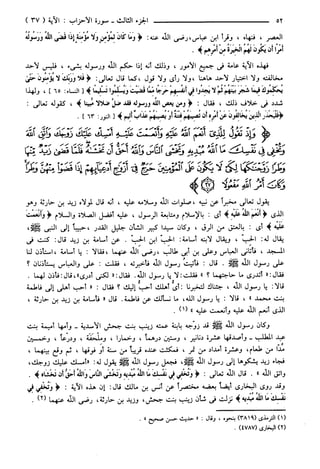 ٥٢ الجزء الثالث - سورة الأحزاب : الآية ( ٣٧ )
العصر ، فنهاه ، وقرأ ابن عباس، رضي الله عنه: ﴿ وَمَا كَانَ لِمُؤْمِنٍ وَلَا مُؤْمِنَةٍ إِذَا قَضَى اللَّهُ وَرَسُولُهُ
أَمْرًا أَن يَكُونَ لَهُمُ الْخِيَرَةُ مِنْ أَمْرِهِمْ ﴾ .
فهذه الآية عامة في جميع الأمور ، وذلك أنه إذا حكم الله ورسوله بشيء ، فليس لأحد
مخالفته ولا اختيار لأحد هاهنا ، ولا رأي ولا قول ، كما قال تعالى: ﴿ فَلَا وَرَبِّكَ لَا يُؤْمِنُونَ حَتَّىٰ
يُحَكِّمُوكَ فِيمَا شَجَرَ بَيْنَهُمْ ثُمَّ لَا يَجِدُوا فِي أَنفُسِهِمْ حَرَجًا مِّمَّا قَضَيْتَ وَيُسَلِّمُوا تَسْلِيمًا ﴾ [ النساء: ٦٥ ] ، ولهذا
شدد في خلاف ذلك ، فقال : ﴿ وَمَن يَعْصِ اللَّهَ وَرَسُولَهُ فَقَدْ ضَلَّ ضَلَالًا مُّبِينًا ﴾ ، كقوله تعالى :
﴿ فَلْيَحْذَرِ الَّذِينَ يُخَالِفُونَ عَنْ أَمْرِهِ أَن تُصِيبَهُمْ فِتْنَةٌ أَوْ يُصِيبَهُمْ عَذَابٌ أَلِيمٌ ﴾ [ النور: ٦٣ ] .
﴿ وَإِذْ تَقُولُ لِلَّذِي أَنْعَمَ اللَّهُ عَلَيْهِ وَأَنْعَمْتَ عَلَيْهِ أَمْسِكْ عَلَيْكَ زَوْجَكَ وَاتَّقِ اللَّهَ
وَتُخْفِي فِي نَفْسِكَ مَا اللَّهُ مُبْدِيهِ وَتَخْشَى النَّاسَ وَاللَّهُ أَحَقُّ أَن تَخْشَاهُ فَلَمَّا قَضَىٰ زَيْدٌ مِّنْهَا
وَطَرًا زَوَّجْنَاكَهَا لِكَيْ لَا يَكُونَ عَلَى الْمُؤْمِنِينَ حَرَجٌ فِي أَزْوَاجِ أَدْعِيَائِهِمْ إِذَا قَضَوْا مِنْهُنَّ وَطَرًا
وَكَانَ أَمْرُ اللَّهِ مَفْعُولًا ﴾
يقول تعالى مخبراً عن نبيه ، صلوات الله وسلامه عليه ، أنه قال لمولاه زيد بن حارثة وهو
الذي ﴿ أَنْعَمَ اللَّهُ عَلَيْهِ ﴾ أي : بالإسلام ومتابعة الرسول ، عليه أفضل الصلاة والسلام ﴿ وَأَنْعَمْتَ
عَلَيْهِ ﴾ أي : بالعتق من الرق ، وكان سيدا كبير الشأن جليل القدر ، حبيباً إلى النبي ﷺ،
يقال له: الحِبّ ، ويقال لابنه أسامة: الحِبّ ابن الحِبّ . عن أسامة بن زيد قال: كنت في
المسجد ، فأتاني العباس وعلي بن أبي طالب ، رضي الله عنهما ، فقالا: يا أسامة ، استأذن لنا
على رسول الله ﷺ . قال : فأتيت رسول الله فأخبرته ، فقلت : علي والعباس يستأذنان ؟
فقال: « أتدري ما حاجتهما ؟ » فقلت: لا يا رسول الله. فقال: « لكني أدري »، فأذن لهما .
قالا : يا رسول الله ، جئناك لتخبرنا : أي أهلك أحب إليك ؟ فقال : « أحب أهلي إلي فاطمة
بنت محمد » ، قالا : يا رسول الله، ما نسألك عن فاطمة. قال: « فأسامة بن زيد بن حارثة ،
الذي أنعم الله عليه وأنعمت عليه » (١) .
وكان رسول الله ﷺ قد زوجه بابنة عمته زينب بنت جحش الأسدية ـ وأمها أميمة بنت
عبد المطلب ـ وأصدقها عشرة دنانير ، وستين درهماً ، وخماراً ، وملحفة ، ودرعاً ، وخمسين
مُدّاً من طعام ، وعشرة أمداد من تمر ، فمكثت عنده قريباً من سنة أو فوقها ، ثم وقع بينهما ،
فجاء زيد يشكوها إلى رسول الله ﷺ ، فجعل رسول الله ﷺ يقول له: « أمسك عليك زوجك،
واتق الله » . قال الله تعالى : ﴿ وَتُخْفِي فِي نَفْسِكَ مَا اللَّهُ مُبْدِيهِ وَتَخْشَى النَّاسَ وَاللَّهُ أَحَقُّ أَن تَخْشَاهُ ﴾ .
وقد روى البخاري أيضاً بعضه مختصراً عن أنس بن مالك قال: إن هذه الآية : ﴿ وَتُخْفِي فِي
نَفْسِكَ مَا اللَّهُ مُبْدِيهِ ﴾ نزلت في شأن زينب بنت جحش، وزيد بن حارثة، رضي الله عنهما (٢) .
(١) الترمذي (٣٨١٩) بنحوه ، وقال : « حديث حسن صحيح » .
(٢) البخاري (٤٧٨٧) .